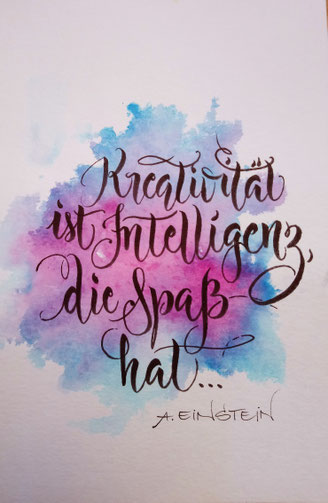 Kreativität
ist Intelligenz,
die Spaß
hat...
A. EINSTEIN